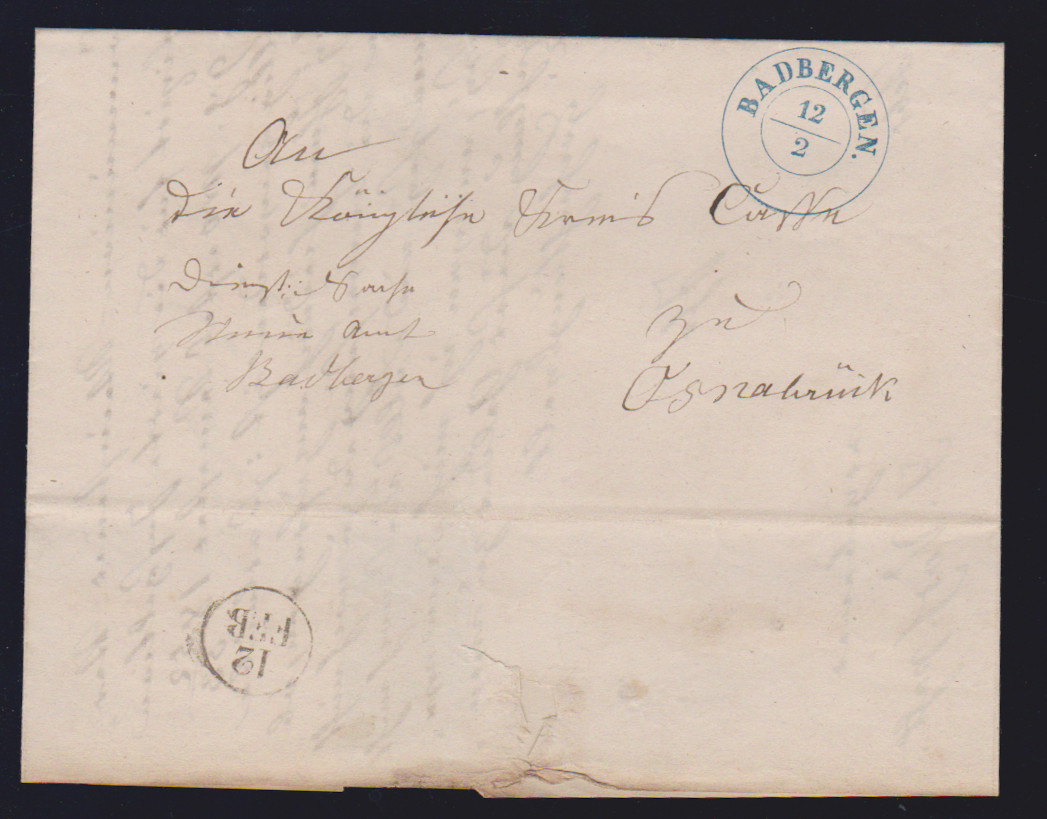 BADBERGEN.
12
2
An
die Königliche Kreis Casse
Dienst: Sache
Steuer Amt
Badbergen
zu
Osnabrück
12
FEB